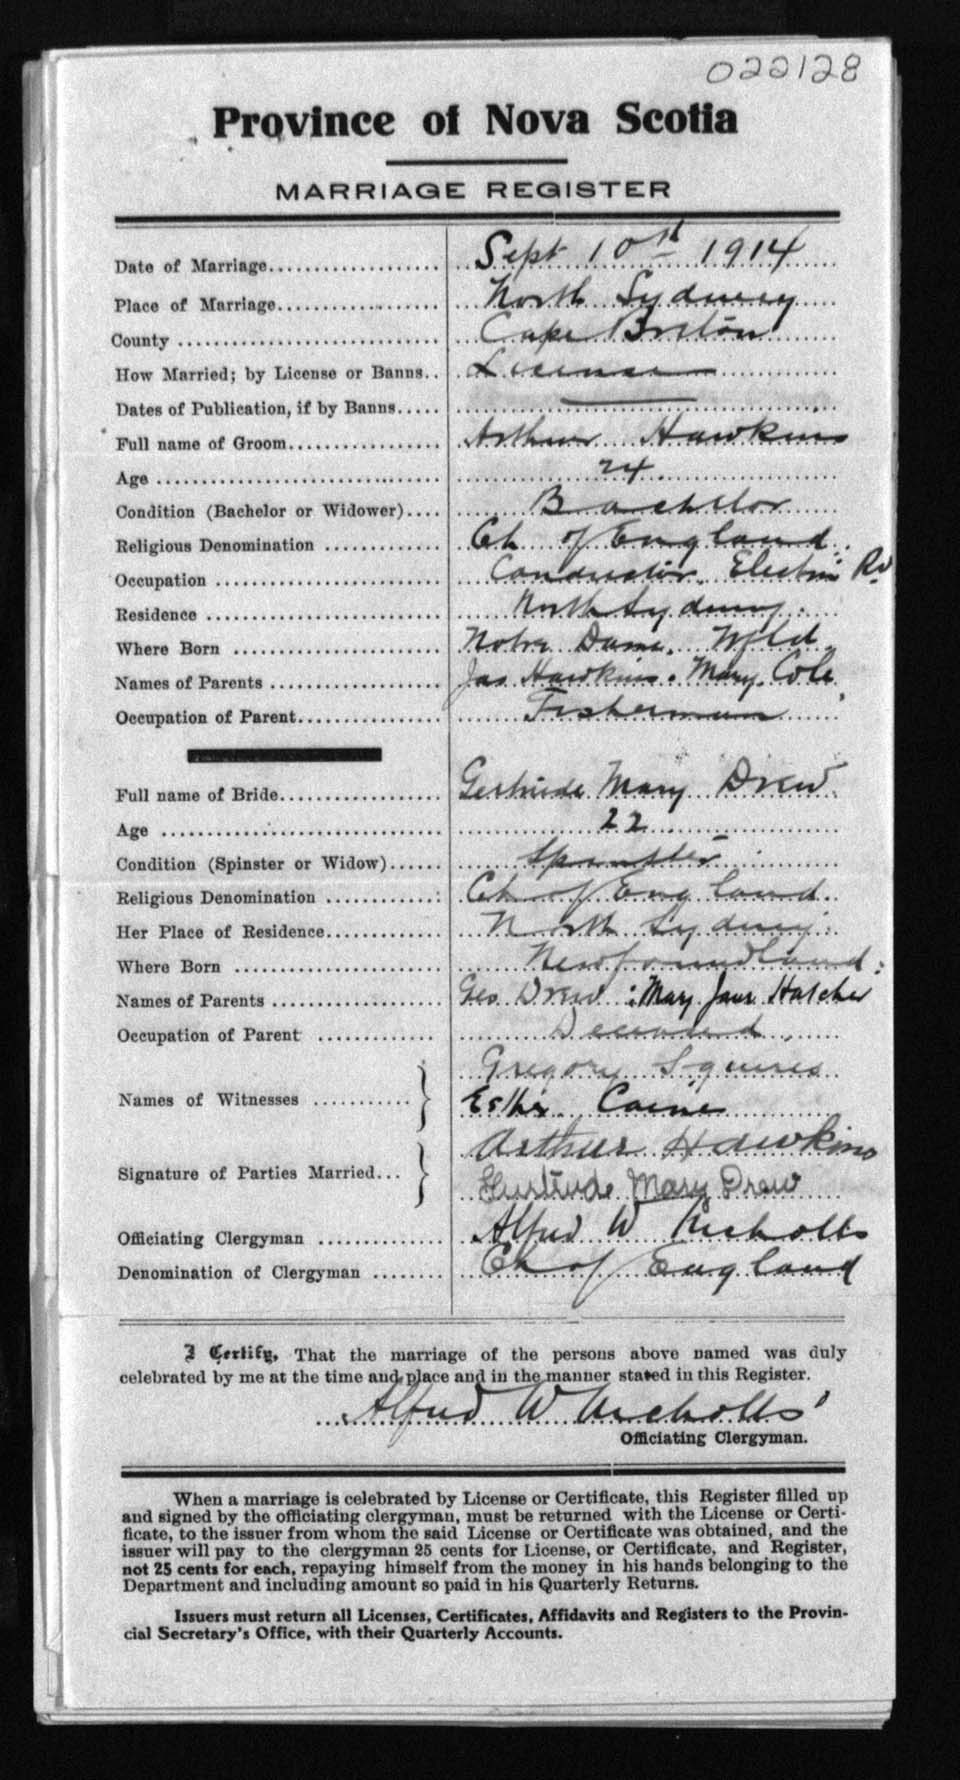 022128
Province of Nova Scotia
MARRIAGE REGISTER
Date of Marriage.................... Sept 10th 1914
Place of Marriage................... North Sydney
County .............................. Cape Breton
How Married; by License or Banns.. License
Dates of Publication, if by Banns..... ———
Full name of Groom.................. Arthur Hawkins
Age ................................. 24
Condition (Bachelor or Widower).... Bachelor
Religious Denomination ............. Ch of England
Occupation .......................... Conductor Electric Ry
Residence ........................... North Sydney.
Where Born ......................... Notre Dame. Nfld
Names of Parents .................... Jas Hawkins. Mary Cole
Occupation of Parent................. Fisherman
Full name of Bride................... Gertrude Mary Drew
Age ................................. 22
Condition (Spinster or Widow)...... Spinster
Religious Denomination ............: Ch of England
Her Place of Residence............. North Sydney
Where Born ........................ Newfoundland:
Names of Parents .................... Geo Drew : Mary Jane Hatcher
Occupation of Parent .............. Deceased
Gregory Squires
Names of Witnesses ........... } Esther Caine
Arthur Hawkins
Signature of Parties Married... } Gurtrude Mary Drew
Officiating Clergyman .............. Alfred W Nicholls
Denomination of Clergyman ........ Ch of England
I Certify, That the marriage of the persons above named was duly
celebrated by me at the time and place and in the manner stated in this Register.
Alfred W Nicholls
Officiating Clergyman.
When a marriage is celebrated by License or Certificate, this Register filled up
and signed by the officiating clergyman, must be returned with the License or Certi-
ficate, to the issuer from whom the said License or Certificate was obtained, and the
issuer will pay to the clergyman 25 cents for License, or Certificate, and Register,
not 25 cents for each, repaying himself from the money in his hands belonging to the
Department and including amount so paid in his Quarterly Returns.
Issuers must return all Licenses, Certificates, Affidavits and Registers to the Provin-
cial Secretary's Office, with their Quarterly Accounts.